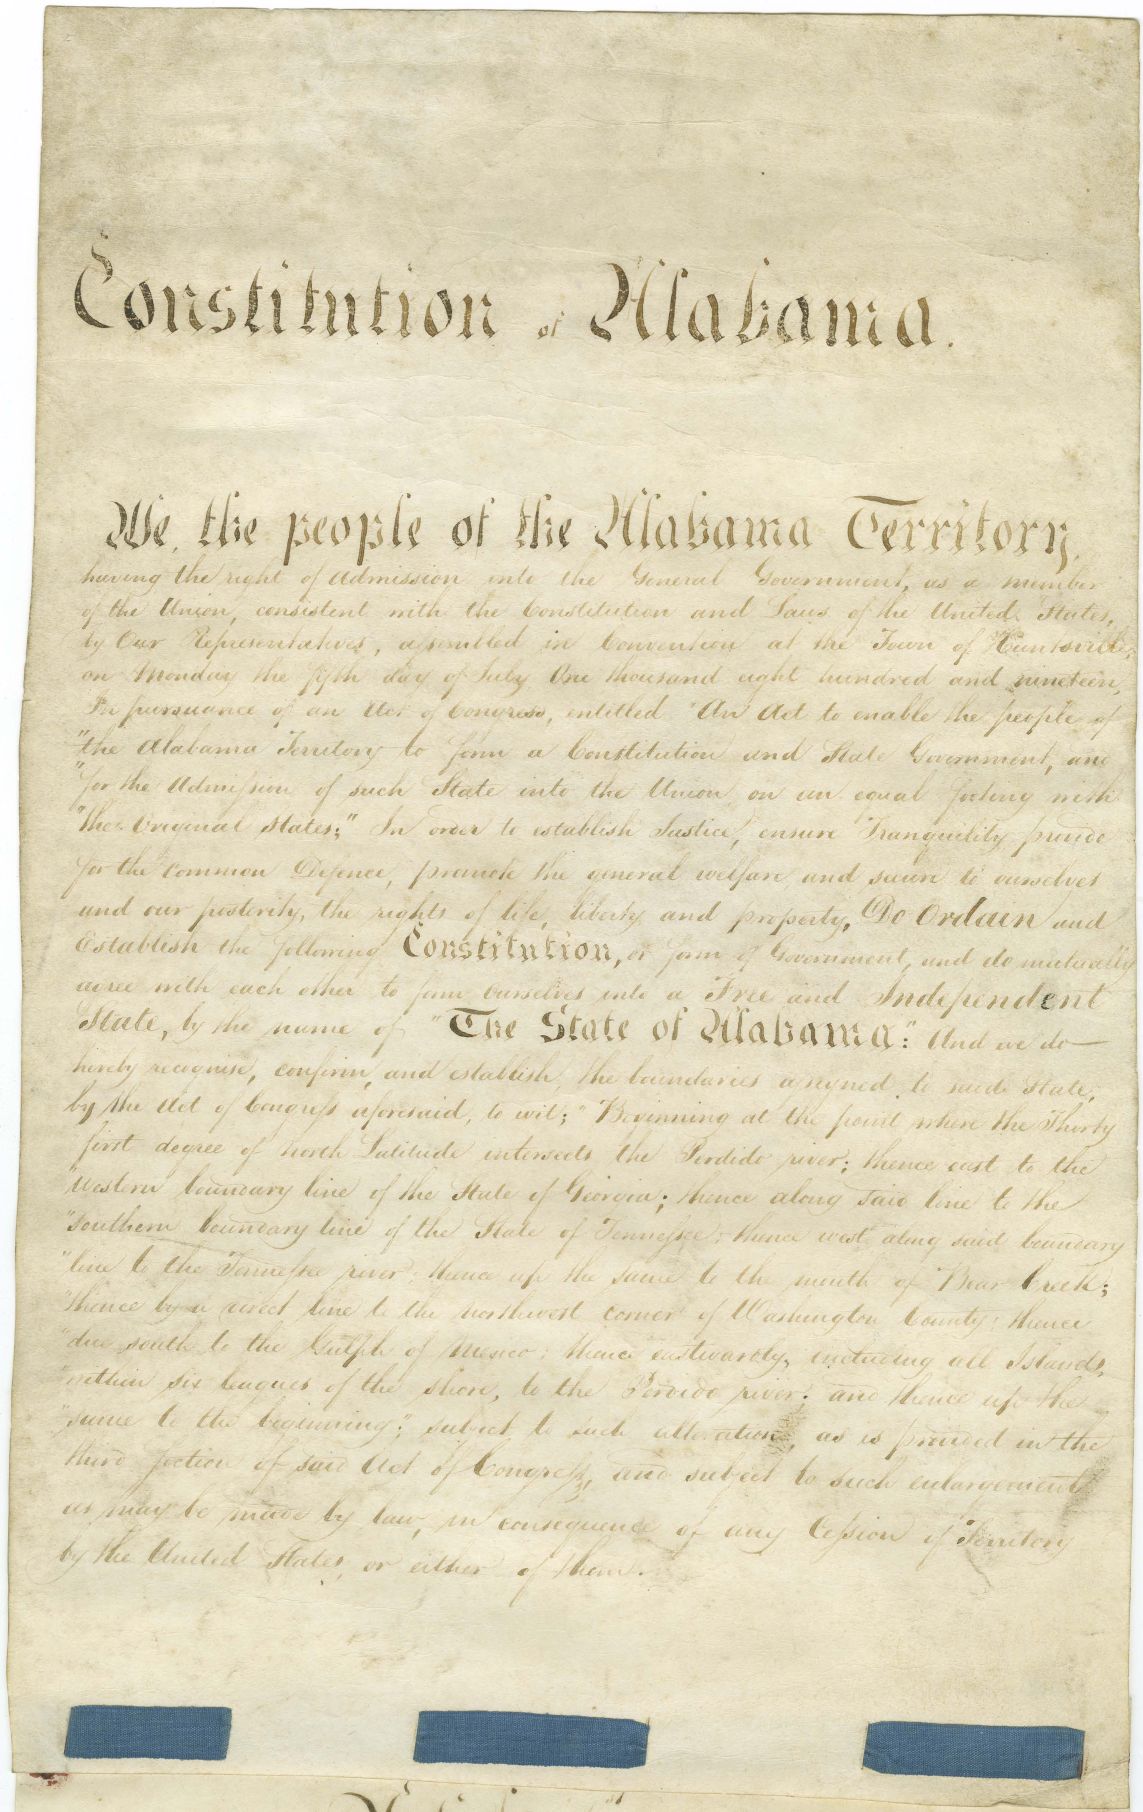 Constitution of Alabama.
We, the people of the Alabama Territory,
having the right of Admission into the General Government, as a member
of the Union, consistent with the Constitution and Laws of the United States,
by Our Representatives, assembled in Convention at the Town of Huntsville,
on Monday the fifth day of July One thousand eight hundred and nineteen,
In pursuance of an Act of Congress, entitled "An Act to enable the people of
"the Alabama Territory to form a Constitution and State Government, and
"for the Admission of such State into the Union, on an equal footing with
"the Original States;" In order to establish Justice, ensure Tranquility, provide
for the common Defence, promote the general welfare, and secure to ourselves
and our posterity, the rights of life, liberty, and property, Do Ordain and
Establish the following Constitution, or form of Government, and do mutually
agree with each other to form ourselves into a Free and Independent
State, by the name of "The State of Alabama": And we do—
hereby recognise, confirm, and establish, the boundaries assigned to said State,
by the Act of Congress aforesaid, to wit; "Beginning at the point where the Thirty
first degree of north Latitude intersects the Perdido river; thence east to the
"Western boundary line of the State of Georgia; thence along said line to the
"southern boundary line of the State of Tennessee; thence west along said boundary
"line to the Tennessee river; thence up the same to the mouth of Bear Creek;
"thence by a direct line to the northwest corner of Washington County; thence
"due south to the Gulph of Mexico; thence eastwardly, including all Islands,
"within six leagues of the shore, to the Perdido river; and thence up the
"same to the beginning"; subject to such alteration, as is provided in the
third section of said Act of Congress, and subject to such enlargement
as may be made by law, in consequence of any Cession of Territory
by the United States, or either of them.